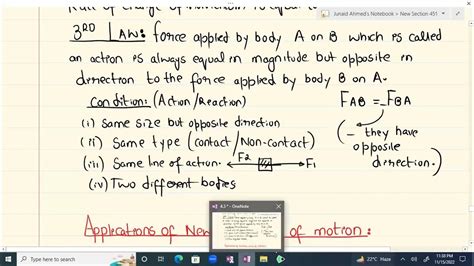 Junaid Ahmed's Notebook > New Section 451
Rate of change of momentum is equal to
3RD LAW: force appled by body A on B which is called
an action is always equal in magnitude but opposite in
direction to the force applied by body B on A.
Condition: (Action/Reaction)
FAB = -FBA
(i) Same size but opposite direction
(ii) Same type (Contact/Non-contact)
(- they have opposite direction.)
(iii) Same line of action. F2 F1
(iv) Two different bodies
4.3* - OneNote
Applications of New of motion:
22°C Haze
11:38 PM
11/15/2022